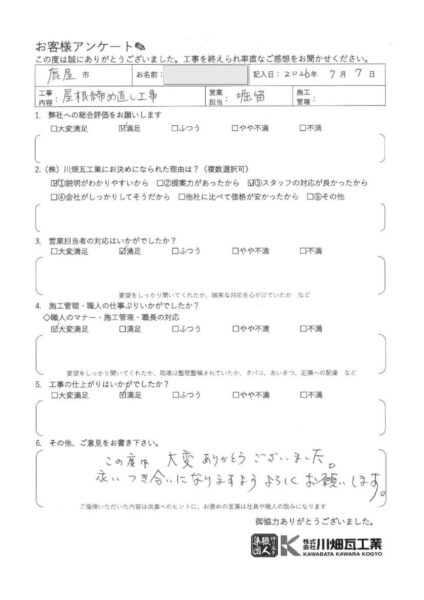 お客様アンケート
この度は誠にありがとうございました。工事を終えられ率直なご感想をお聞かせください。
鹿屋 市 お名前: 記入日:2026年 7月 7日
工事内容: 屋根締め直し工事 営業担当: 堀留 施工管理:
1. 弊社への総合評価をお願いします
□大変満足 ☑満足 □ふつう □やや不満 □不満
2.(株)川畑瓦工業にお決めになられた理由は?(複数選択可)
☑①説明がわかりやすいから □②提案力があったから ☑③スタッフの対応が良かったから
□④会社がしっかりしてそうだから □他社に比べて価格が安かったから □⑥その他
3. 営業担当者の対応はいかがでしたか?
□大変満足 ☑満足 □ふつう □やや不満 □不満
要望をしっかり聞いてくれたか、誠実な対応を心がけていたか など
4. 施工管理・職人の仕事ぶりいかがでしたか?
◇職人のマナー・施工管理・職長の対応
☑大変満足 □満足 □ふつう □やや不満 □不満
要望をしっかり聞いてくれたか、現場は整理整頓されていたか、タバコ、あいさつ、近隣への配慮 など
5. 工事の仕上がりはいかがでしたか?
□大変満足 ☑満足 □ふつう □やや不満 □不満
6. その他、ご意見をお書き下さい。
この度は 大変 ありがとうございました。
永い つき合いになりますよう よろしくお願いします。
ご指摘いただいた内容は改善へのヒントに、お褒めの言葉は社員や職人の励みになります
御協力ありがとうございました。
株式会社 川畑瓦工業
KAWABATA KAWARA KOGYO